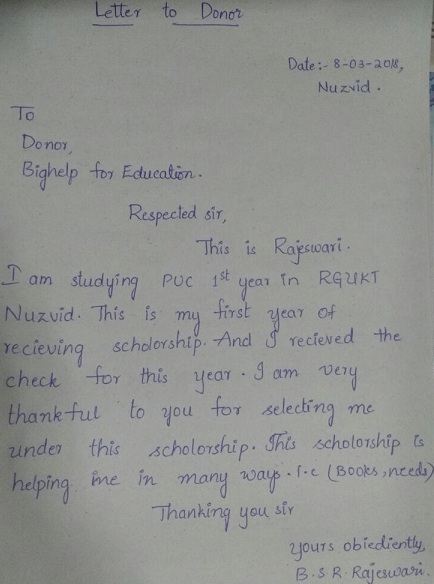 Letter to Donor
Date:- 8-03-2018,
Nuzvid.
To
Donor,
Bighelp for Education.
Respected sir,
This is Rajeswari.
I am studying PUC 1st year in RGUKT
Nuzvid. This is my first year of
recieving scholorship. And I recieved the
check for this year. I am very
thankful to you for selecting me
under this scholorship. This scholorship is
helping me in many ways. i.e (Books, needs)
Thanking you sir
yours obiediently,
B.S.R. Rajeswari.